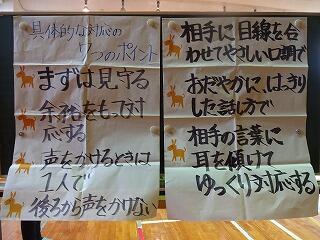 具体的な対応の
7つのポイント
まずは見守る
余裕をもって対
応する
声をかけるときは
1人で
後ろから声をかけない
相手に目線を合
わせてやさしい口調で
おだやかに、はっきり
した話し方で
相手の言葉に
耳を傾けて
ゆっくり対応する